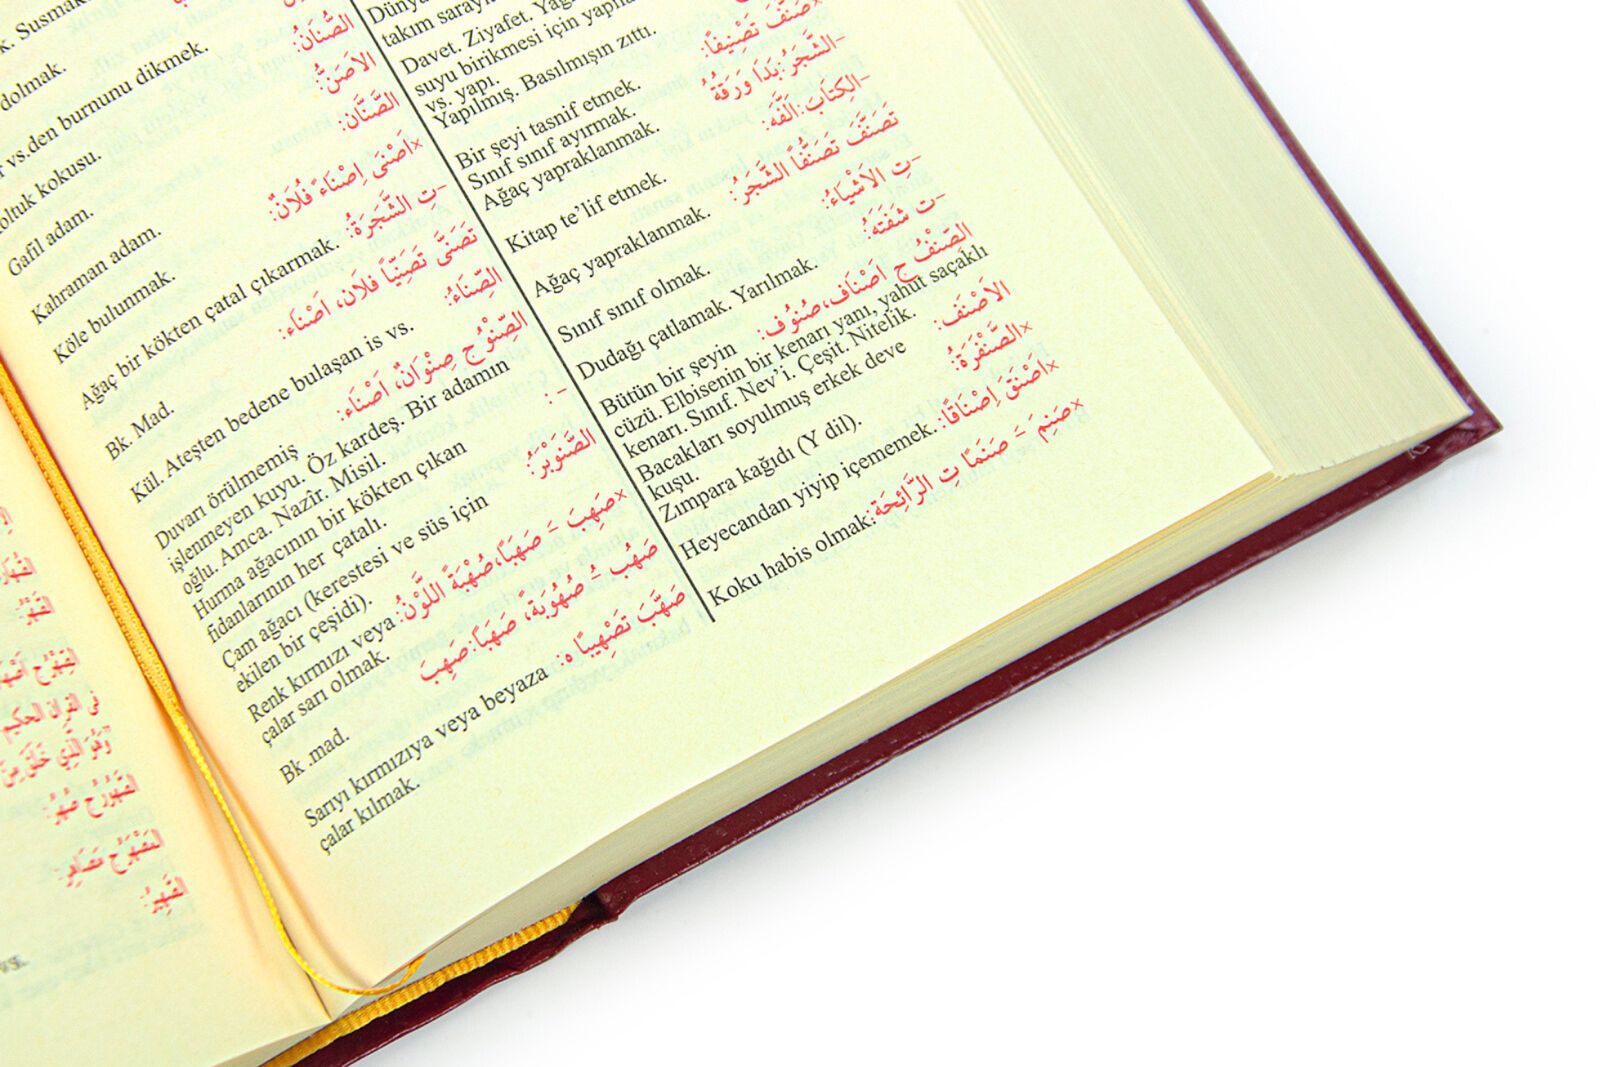 takım
Davet. Ziyafet.
suyu birikmesi için
vs. yapı.
Yapılmış. Basılmışın zıttı.
×صَنَّفَ تَصْنِيفًا: Bir şeyi tasnif etmek.
Sınıf sınıf ayırmak.
–الشَّجَرُ: بَدَا وَرَقَهُ Ağaç yapraklanmak.
–الكِتَابَ: اَلَّفَهُ: Kitap te’lif etmek.
تَصَنَّفَ تَصَنُّفًا الشَّجَرُ: Ağaç yapraklanmak.
–تِ الاَشْيَاءُ: Sınıf sınıf olmak.
–ت شَفَتُهُ: Dudağı çatlamak. Yarılmak.
الصِّنْفُ ج اَصْنَاف، صُنُوف: Bütün bir şeyin
cüzü. Elbisenin bir kenarı yanı, yahut saçaklı
kenarı. Sınıf. Nev’i. Çeşit. Nitelik.
الاَصْنَفُ: Bacakları soyulmuş erkek deve
kuşu.
×الصَّنْفَرَةُ: Zımpara kağıdı (Y dil).
×اَصْنَقَ اِصْنَاقًا: Heyecandan yiyip içememek.
×صَنِمَ – صَنَمًا تِ الرَّائِحَة: Koku habis olmak.
k. Susmak
dolmak.
vs.den burnunu dikmek.
الصُّنَانُ: kokusu.
الاَصَنُّ: Gafil adam.
الصَّنَّان: Kahraman adam.
×اَصْنَى اِصْنَاءً فُلَانٌ: Köle bulunmak.
–تِ الشَّجَرَةُ: Ağaç bir kökten çatal çıkarmak.
تَصَنَّى تَصَنِّيًا فلَان، اَصْنَاء: Bk. Mad.
الصِّنَاءُ: Kül. Ateşten bedene bulaşan is vs.
الصِّنْوُ ج صِنْوَانٌ، اَصْنَاء: Duvarı örülmemiş
işlenmeyen kuyu. Öz kardeş. Bir adamın
oğlu. Amca. Nazîr. Misil.
– : Hurma ağacının bir kökten çıkan
fidanlarının her çatalı.
الصَّنَوْبَرُ: Çam ağacı (kerestesi ve süs için
ekilen bir çeşidi).
×صَهِبَ – صَهَبًا، صُهْبَةً اللَّوْنُ: Renk kırmızı veya
çalar sarı olmak.
صَهُبَ – صُهُوبَةً، صَهَبَا: صَهِبَ Bk .mad.
صَهَّبَ تَصْهِيبًا ه: Sarıyı kırmızıya veya beyaza
çalar kılmak.
فى القران الحكيم
vs.